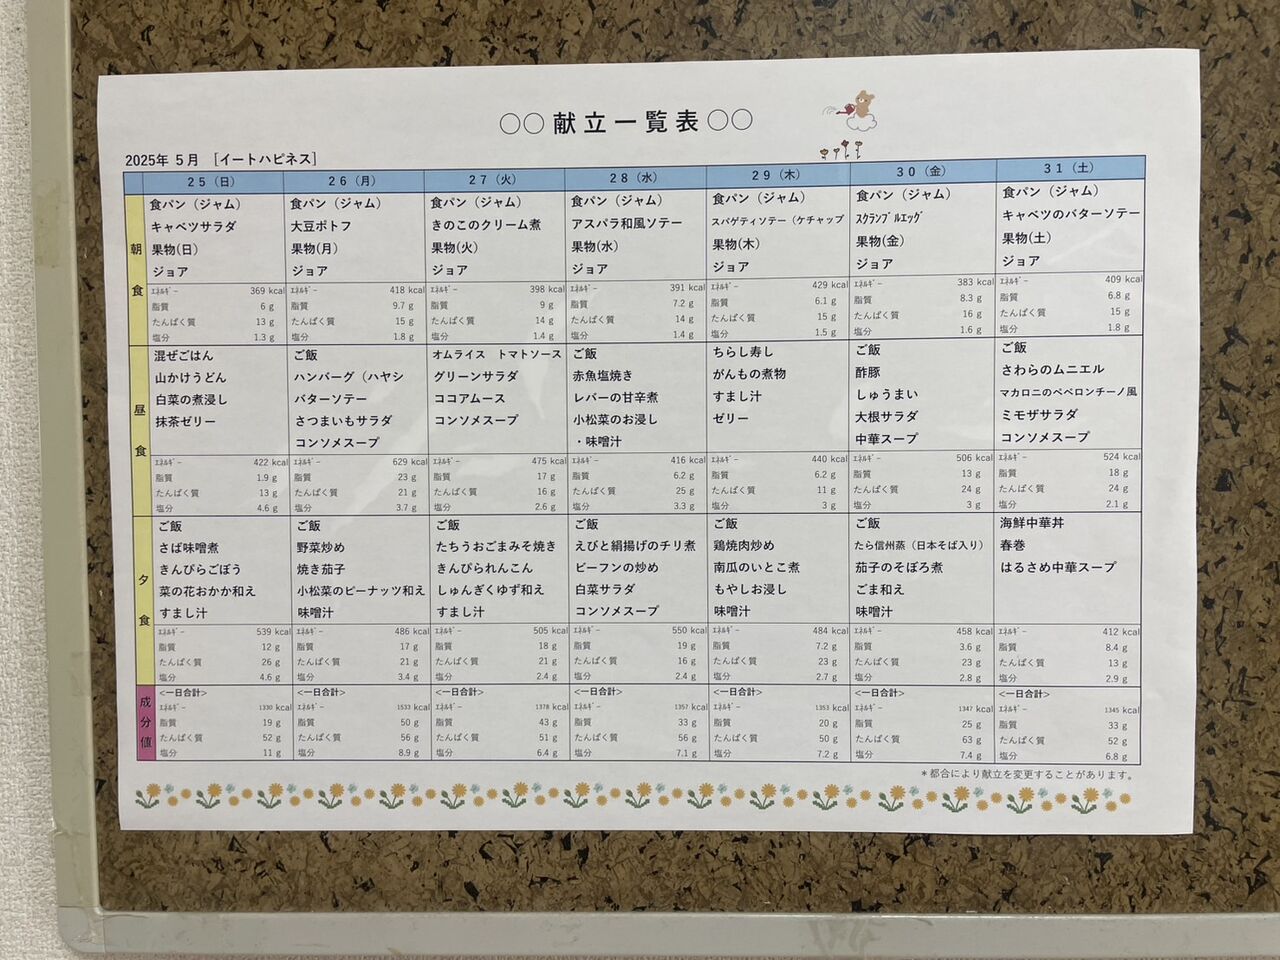 ○○献立一覧表○○
2025年 5月 [イートハピネス]
25（日） 26（月） 27（火） 28（水） 29（木） 30（金） 31（土）
朝食
食パン（ジャム） 食パン（ジャム） 食パン（ジャム） 食パン（ジャム） 食パン（ジャム） 食パン（ジャム） 食パン（ジャム）
キャベツサラダ 大豆ポトフ きのこのクリーム煮 アスパラ和風ソテー スパゲティソテー（ケチャップ ｽｸﾗﾝﾌﾞﾙｴｯｸﾞ キャベツのバターソテー
果物(日) 果物(月) 果物(火) 果物(水) 果物(木) 果物(金) 果物(土)
ジョア ジョア ジョア ジョア ジョア ジョア ジョア
ｴﾈﾙｷﾞｰ 369 kcal ｴﾈﾙｷﾞｰ 418 kcal ｴﾈﾙｷﾞｰ 398 kcal ｴﾈﾙｷﾞｰ 391 kcal ｴﾈﾙｷﾞｰ 429 kcal ｴﾈﾙｷﾞｰ 383 kcal ｴﾈﾙｷﾞｰ 409 kcal
脂質 6 g 脂質 9.7 g 脂質 9 g 脂質 7.2 g 脂質 6.1 g 脂質 8.3 g 脂質 6.8 g
たんぱく質 13 g たんぱく質 15 g たんぱく質 14 g たんぱく質 14 g たんぱく質 15 g たんぱく質 16 g たんぱく質 15 g
塩分 1.3 g 塩分 1.8 g 塩分 1.4 g 塩分 1.4 g 塩分 1.5 g 塩分 1.6 g 塩分 1.8 g
昼食
混ぜごはん ご飯 オムライス トマトソース ご飯 ちらし寿し ご飯 ご飯
山かけうどん ハンバーグ（ハヤシ グリーンサラダ 赤魚塩焼き がんもの煮物 酢豚 さわらのムニエル
白菜の煮浸し バターソテー ココアムース レバーの甘辛煮 すまし汁 しゅうまい マカロニのペペロンチーノ風
抹茶ゼリー さつまいもサラダ コンソメスープ 小松菜のお浸し ゼリー 大根サラダ ミモザサラダ
コンソメスープ ・味噌汁 中華スープ コンソメスープ
ｴﾈﾙｷﾞｰ 422 kcal ｴﾈﾙｷﾞｰ 629 kcal ｴﾈﾙｷﾞｰ 475 kcal ｴﾈﾙｷﾞｰ 416 kcal ｴﾈﾙｷﾞｰ 440 kcal ｴﾈﾙｷﾞｰ 506 kcal ｴﾈﾙｷﾞｰ 524 kcal
脂質 1.9 g 脂質 23 g 脂質 17 g 脂質 6.2 g 脂質 6.2 g 脂質 13 g 脂質 18 g
たんぱく質 13 g たんぱく質 21 g たんぱく質 16 g たんぱく質 25 g たんぱく質 11 g たんぱく質 24 g たんぱく質 24 g
塩分 4.6 g 塩分 3.7 g 塩分 2.6 g 塩分 3.3 g 塩分 3 g 塩分 3 g 塩分 2.1 g
夕食
ご飯 ご飯 ご飯 ご飯 ご飯 ご飯 海鮮中華丼
さば味噌煮 野菜炒め たちうおごまみそ焼き えびと絹揚げのチリ煮 鶏焼肉炒め たら信州蒸（日本そば入り） 春巻
きんぴらごぼう 焼き茄子 きんぴられんこん ビーフンの炒め 南瓜のいとこ煮 茄子のそぼろ煮 はるさめ中華スープ
菜の花おかか和え 小松菜のピーナッツ和え しゅんぎくゆず和え 白菜サラダ もやしお浸し ごま和え
すまし汁 味噌汁 すまし汁 コンソメスープ 味噌汁 味噌汁
ｴﾈﾙｷﾞｰ 539 kcal ｴﾈﾙｷﾞｰ 486 kcal ｴﾈﾙｷﾞｰ 505 kcal ｴﾈﾙｷﾞｰ 550 kcal ｴﾈﾙｷﾞｰ 484 kcal ｴﾈﾙｷﾞｰ 458 kcal ｴﾈﾙｷﾞｰ 412 kcal
脂質 12 g 脂質 17 g 脂質 18 g 脂質 19 g 脂質 7.2 g 脂質 3.6 g 脂質 8.4 g
たんぱく質 26 g たんぱく質 21 g たんぱく質 21 g たんぱく質 16 g たんぱく質 23 g たんぱく質 23 g たんぱく質 13 g
塩分 4.6 g 塩分 3.4 g 塩分 2.4 g 塩分 2.4 g 塩分 2.7 g 塩分 2.8 g 塩分 2.9 g
成分値
<一日合計> <一日合計> <一日合計> <一日合計> <一日合計> <一日合計> <一日合計>
ｴﾈﾙｷﾞｰ 1330 kcal ｴﾈﾙｷﾞｰ 1533 kcal ｴﾈﾙｷﾞｰ 1378 kcal ｴﾈﾙｷﾞｰ 1357 kcal ｴﾈﾙｷﾞｰ 1353 kcal ｴﾈﾙｷﾞｰ 1347 kcal ｴﾈﾙｷﾞｰ 1345 kcal
脂質 19 g 脂質 50 g 脂質 43 g 脂質 33 g 脂質 20 g 脂質 25 g 脂質 33 g
たんぱく質 52 g たんぱく質 56 g たんぱく質 51 g たんぱく質 56 g たんぱく質 50 g たんぱく質 63 g たんぱく質 52 g
塩分 11 g 塩分 8.9 g 塩分 6.4 g 塩分 7.1 g 塩分 7.2 g 塩分 7.4 g 塩分 6.8 g
＊都合により献立を変更することがあります。